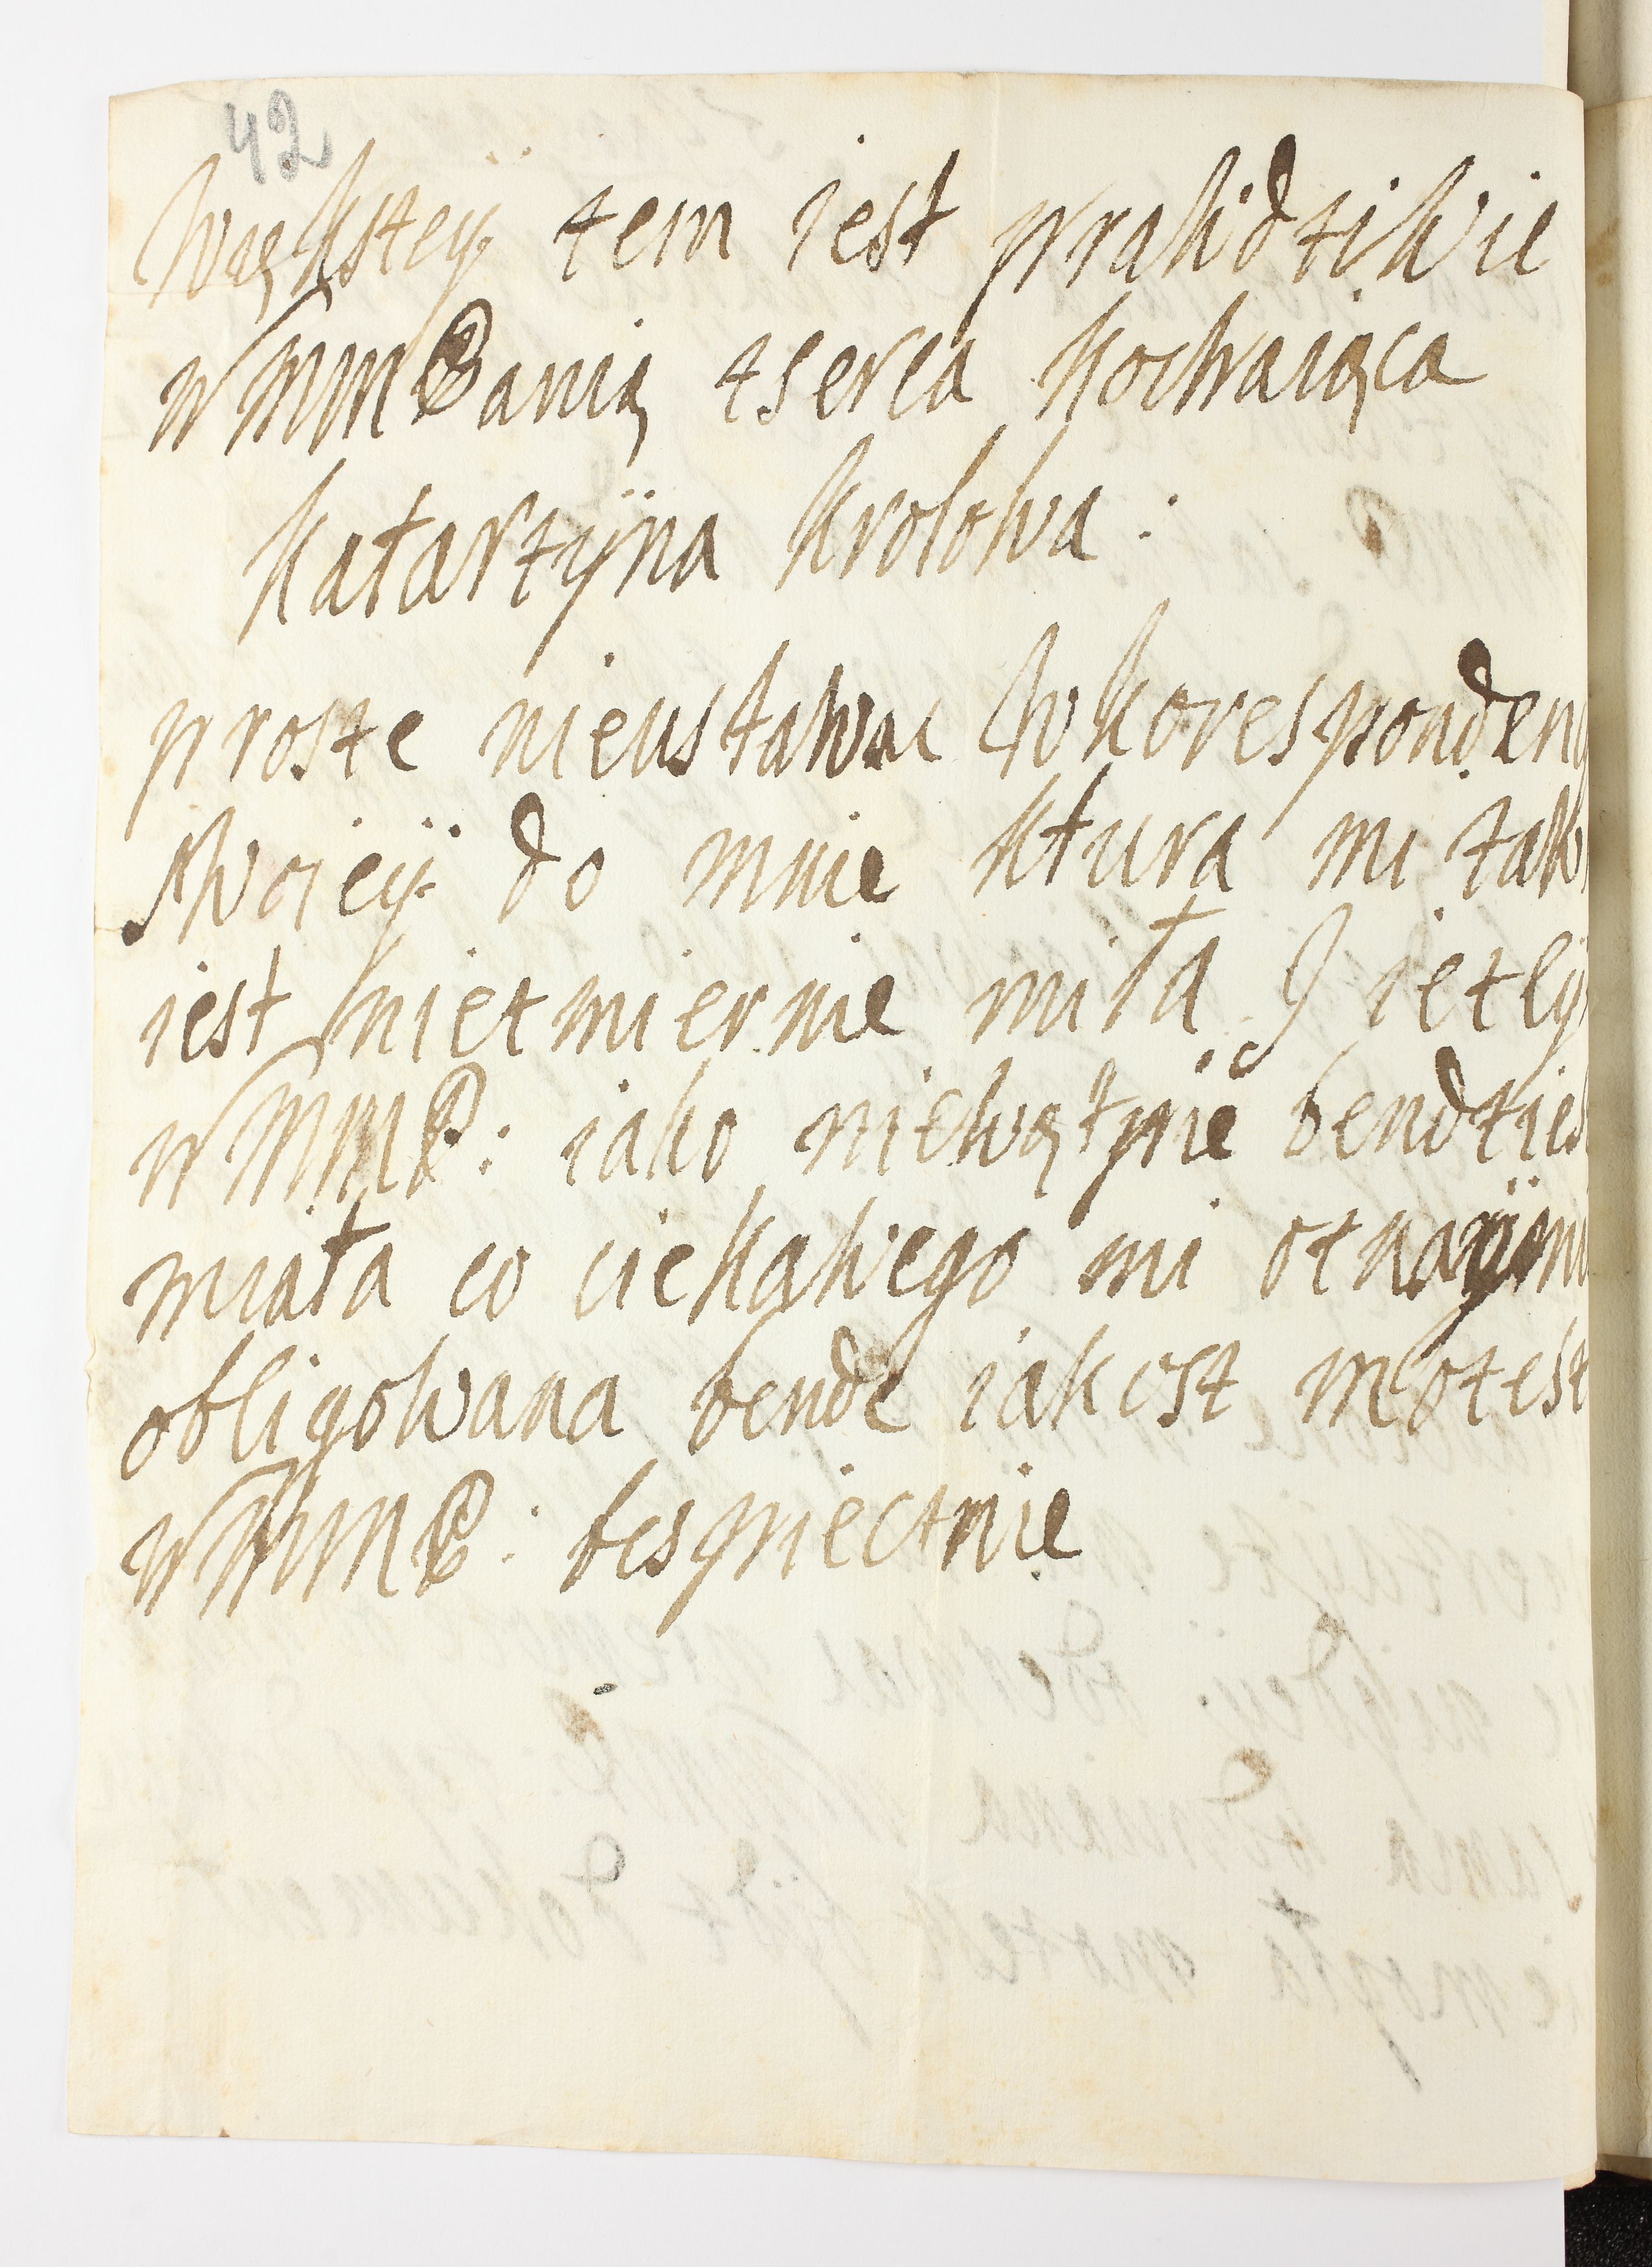 42
Wąkstey zem iest prawdziwie
WMMPanią zserca kochaiąca
Katarzÿna krolowa:
prosze nieustawac wkoresponden
swoieÿ do mnie ktura mi zaw
iest niezmiernie miła J iezely
WMMP: iako niewątpie bendzies
miała co ciekawego mi oznaÿmi
obligowana bende iakosz możesz
WMMP: bespiecznie